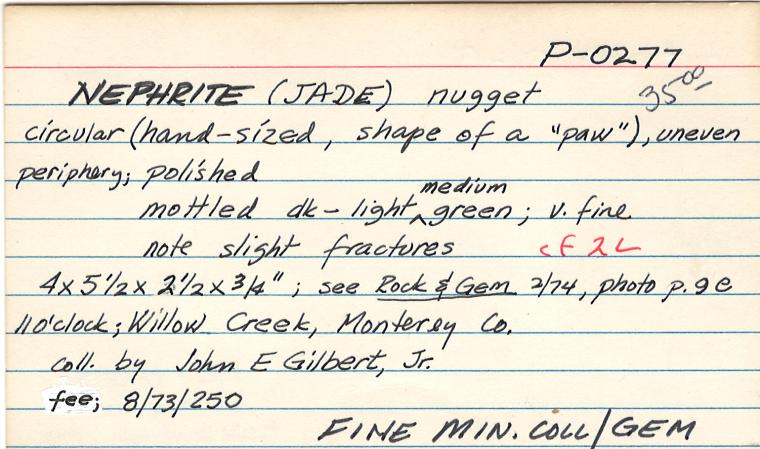 P-0277
NEPHRITE (JADE) nugget 35.00
circular (hand-sized, shape of a "paw"), uneven
periphery; polished
mottled dk-light ^medium green; v. fine
note slight fractures cf 2L
4 x 5 1/2 x 2 1/2 x 3/4"; see Rock & Gem 2/74, photo p. 9 @
11 o'clock; Willow Creek, Monterey Co.
coll. by John E Gilbert, Jr.
fee; 8/73/250
FINE MIN. COLL/GEM